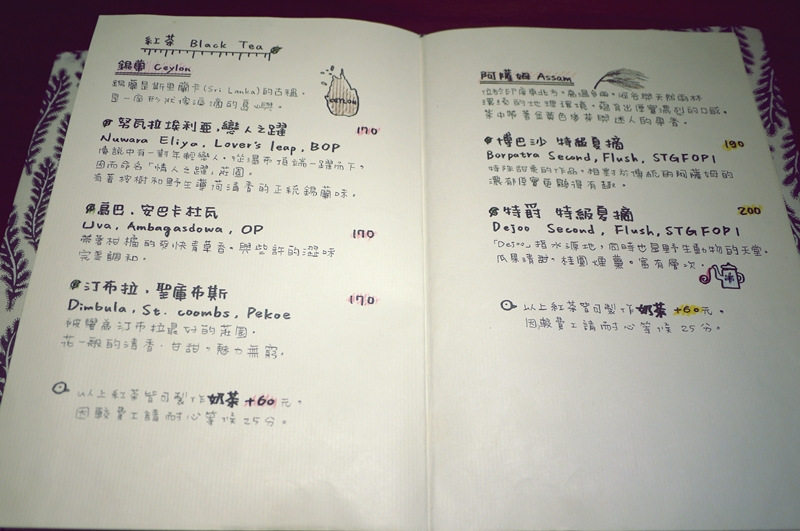 紅茶 Black Tea
錫蘭 Ceylon
錫蘭是斯里蘭卡(Sri Lanka)的古稱，
是一座形狀像淚滴的島嶼。
CEYLON
努瓦拉埃利亞，戀人之躍 170
Nuwara Eliya, Lover's leap, BOP
傳說中有一對年輕戀人，從瀑布頂端一躍而下，
因而命名「情人之躍」莊園。
有著桉樹和野生薄荷清香的正統錫蘭味。
烏巴，安巴卡杜瓦
Uva, Ambagasdowa, OP 170
帶著柑橘的爽快青草香，與些許的澀味
完美調和。
汀布拉，聖庫布斯 170
Dimbula, St. coombs, Pekoe
被譽為汀布拉最好的莊園。
花一般的清香，甘甜，魅力無窮。
以上紅茶皆可製作奶茶+60元。
因較費工請耐心等候25分。
阿薩姆 Assam
位於印度東北方。高溫多雨。河谷與天然雨林
環繞的地理環境，蘊育出厚實濃烈的口感。
茶中帶著金黃色澤
博巴沙 特級夏摘 190
Borpatra Second, Flush, STGFOP1
特殊甜香的作品，相對於傳統的阿薩姆的
濃郁厚實更顯得有趣。
特爵 特級夏摘 200
Dejoo Second, Flush, STGFOP1
「Dejoo」指水源地，同時也是野生動物的天堂。
瓜果清甜。桂圓煙薰。富有層次。
以上紅茶皆可製作奶茶+60元。
因較費工請耐心等候25分。